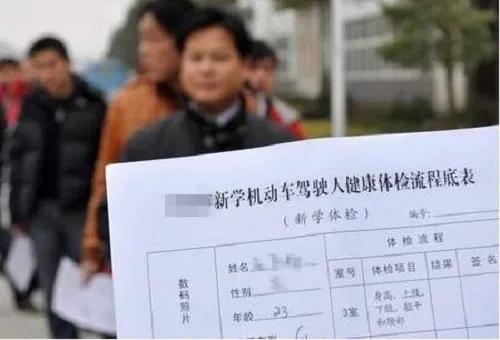 新学机动车驾驶人健康体检流程底表
(新学体检) 编号:
数码照片
姓名 体检流程
性别 室号 体检项目 结果 签名
年龄 23 3室 身高、上肢、
下肢、躯干
和颈部